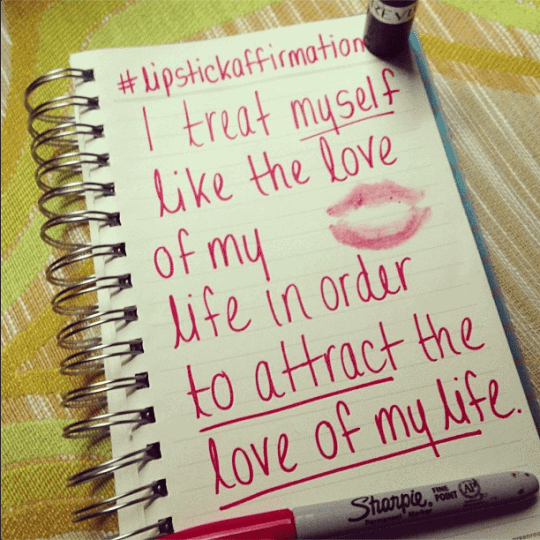 #lipstickaffirmation
I treat myself
like the love
of my
life in order
to attract the
love of my life.
REVL
Sharpie. FINE POINT AP
Permanent Marker